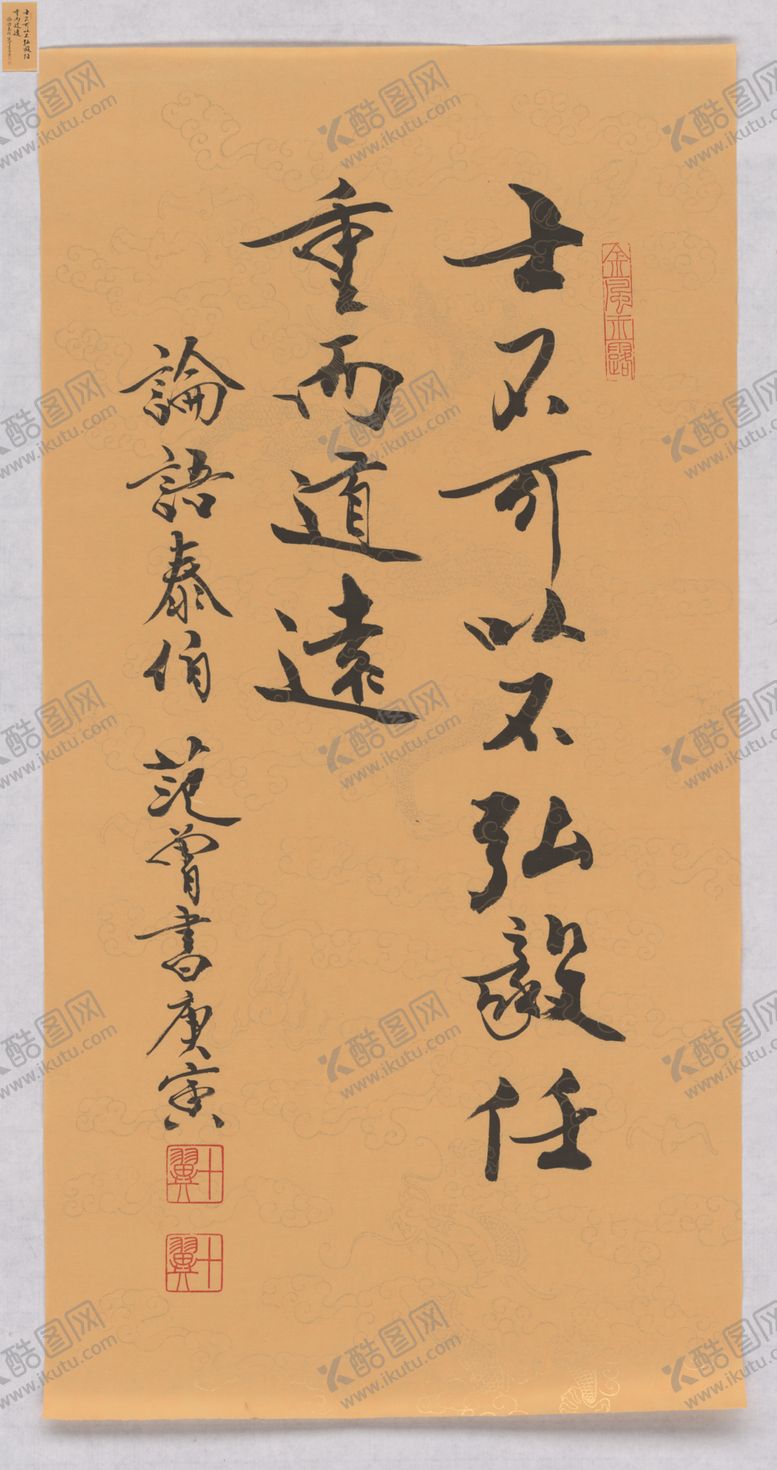 士不可以不弘毅任
重而道遠
論語泰伯 范曾書庚寅
金風玉露
十翼
十翼
酷图网
www.ikutu.com